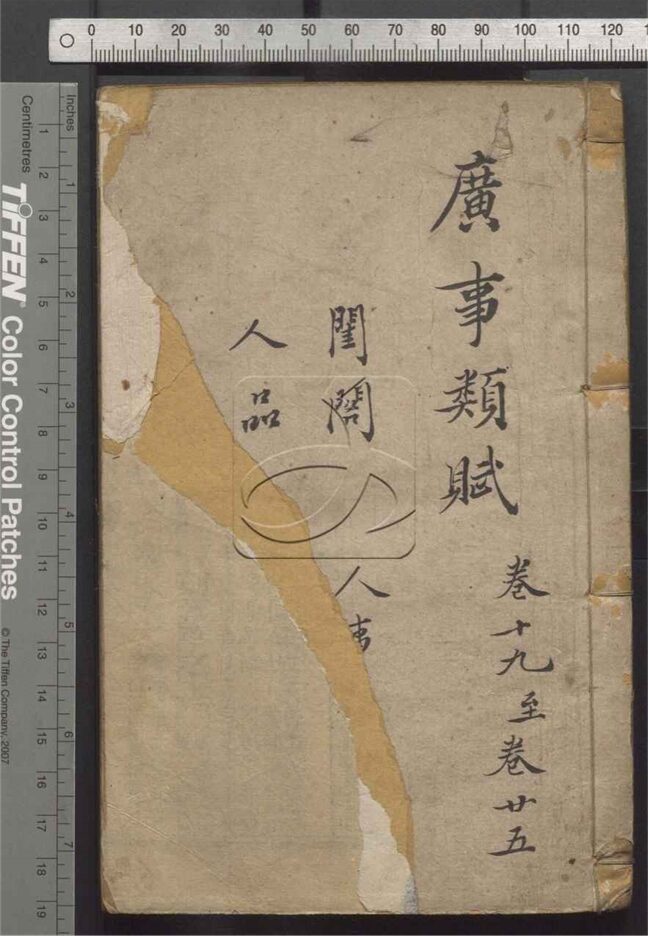 0 10 20 30 40 50 60 70 80 90 100 110 120
廣事類賦
卷十九至卷廿五
閨閣 人事
人品
Inches
1 2 3 4 5 6 7
Centimetres
1 2 3 4 5 6 7 8 9 10 11 12 13 14 15 16 17 18 19
TIFFEN® Color Control Patches
© The Tiffen Company, 2007